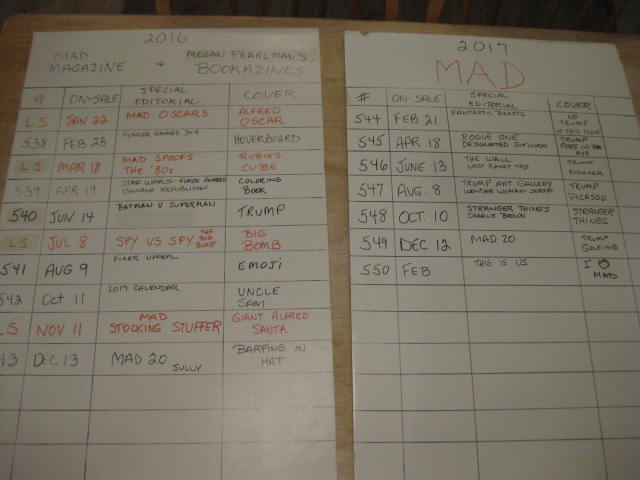 2016
MAD MAGAZINE + MEGAN PEARLMAN'S BOOKAZINES
# ON-SALE SPECIAL EDITORIAL COVER
LS JAN 22 MAD OSCARS ALFRED OSCAR
538 FEB 23 HUNGER GAMES 3-4 HOVERBOARD
LS MAR 18 MAD SPOOFS THE '80s RUBIK'S CUBE
539 APR 19 STAR WARS - FORCE AWAKENS BANANA REPUBLICAN COLORING BOOK
540 JUN 14 BATMAN V SUPERMAN TRUMP
LS JUL 8 SPY VS SPY THE BIG BLAST BIG BOMB
541 AUG 9 FIXER UPPER EMOJI
542 Oct 11 2017 CALENDAR UNCLE SAM
LS NOV 11 MAD STOCKING STUFFER GIANT ALFRED SANTA
43 DEC 13 MAD 20 SULLY BARFING IN HAT
2017
MAD
# ON-SALE SPECIAL EDITORIAL COVER
544 FEB 21 FANTASTIC BEASTS NO TRUMP IN THIS ISSUE
545 APR 18 ROGUE ONE DESIGNATED SURVIVOR TRUMP POKE IN THE EYE
546 JUNE 13 THE WALL LAST RANGT TRUMP KUSHNER
547 AUG. 8 TRUMP ART GALLERY WONDER WOMAN TRUMP PICASSO
548 OCT. 10 STRANGER THINGS CHARLIE BROWN STRANGER THINGS
549 DEC 12 MAD 20 TRUMP GOLFING
550 FEB THIS IS US I MAD